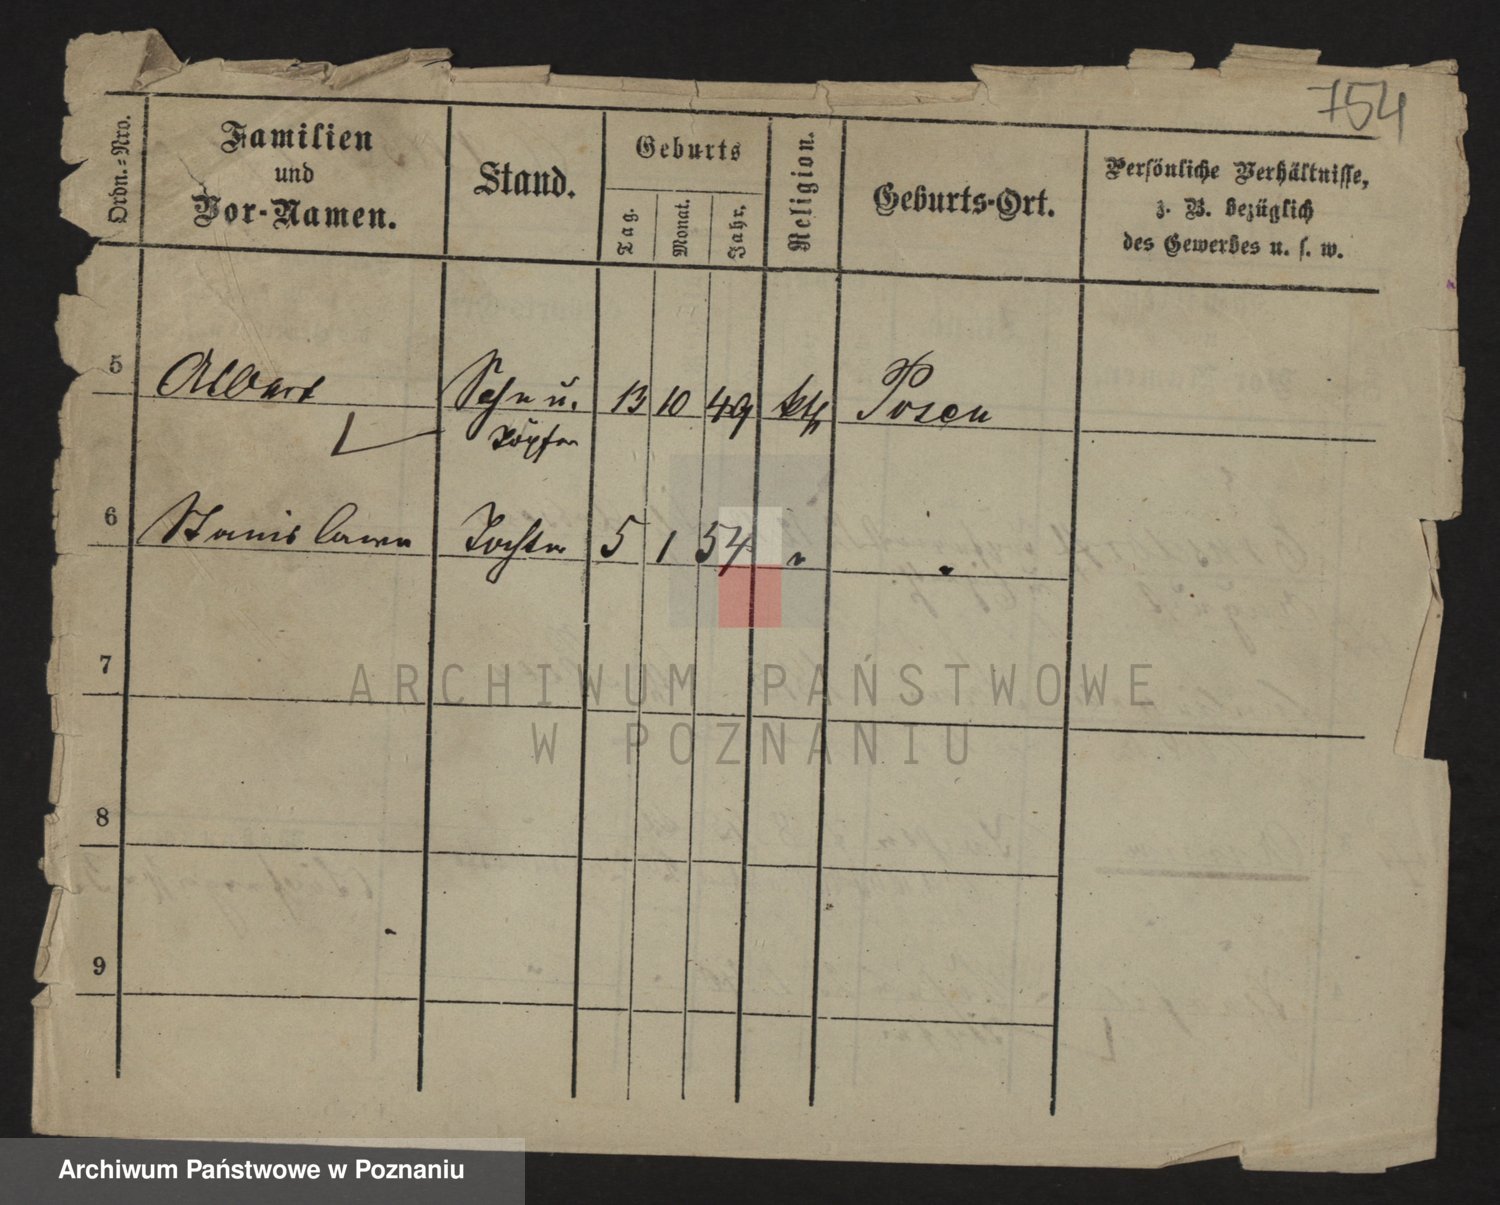 754
Ordn.-Nro.
Familien
und
Vor-Namen.
Stand.
Geburts
Tag.
Monat.
Jahr.
Religion.
Geburts-Ort.
Persönliche Verhältnisse,
z. B. bezüglich
des Gewerbes u. s. w.
5 Albert Sohn u. 13 10 49 kth Posen
Töpfer
6 Stanislawa Tochter 5 1 54 " "
7
8
9
ARCHIWUM PAŃSTWOWE
W POZNANIU
Archiwum Państwowe w Poznaniu